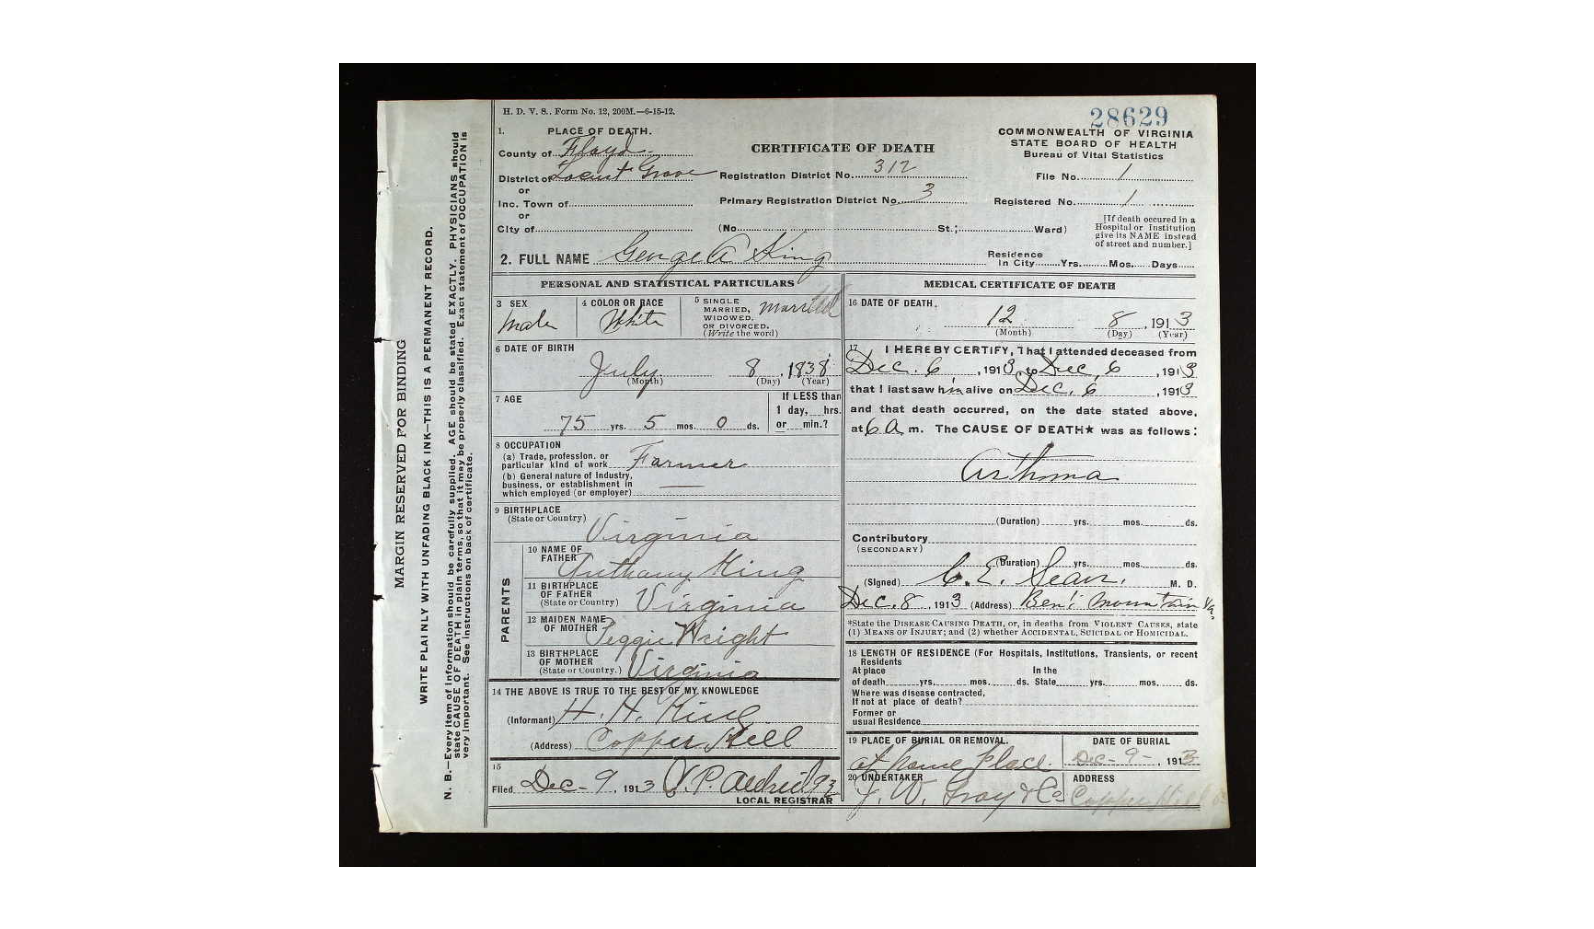 H. D. V. S. Form No. 12, 200M.—6-15-12.
28629
1. PLACE OF DEATH.
County of Floyd
District of Locust Grove
or
Inc. Town of
or
City of
CERTIFICATE OF DEATH
Registration District No. 312
Primary Registration District No. 3
(No. St.; Ward)
COMMONWEALTH OF VIRGINIA
STATE BOARD OF HEALTH
Bureau of Vital Statistics
File No. 1
Registered No. 1
[If death occured in a
Hospital or Institution
give its NAME instead
of street and number.]
2. FULL NAME George A King
Residence
In City Yrs. Mos. Days
PERSONAL AND STATISTICAL PARTICULARS
3 SEX
Male
4 COLOR OR RACE
White
5 SINGLE
MARRIED,
WIDOWED,
OR DIVORCED.
(Write the word)
Married
6 DATE OF BIRTH
July 8, 1838
(Month) (Day) (Year)
7 AGE
75 yrs. 5 mos. 0 ds.
If LESS than
1 day, hrs.
or min.?
8 OCCUPATION
(a) Trade, profession, or
particular kind of work Farmer
(b) General nature of Industry,
business, or establishment in
which employed (or employer)
9 BIRTHPLACE
(State or Country)
Virginia
PARENTS
10 NAME OF
FATHER
Anthony King
11 BIRTHPLACE
OF FATHER
(State or Country) Virginia
12 MAIDEN NAME
OF MOTHER Peggie Wright
13 BIRTHPLACE
OF MOTHER
(State or Country.) Virginia
14 THE ABOVE IS TRUE TO THE BEST OF MY KNOWLEDGE
(Informant) H. H. King
(Address) Copper Hill
15
Filed Dec - 9, 1913
LOCAL REGISTRAR
MEDICAL CERTIFICATE OF DEATH
16 DATE OF DEATH.
12 8, 1913
(Month) (Day) (Year)
17 I HEREBY CERTIFY, That I attended deceased from
Dec. 6, 1913, to Dec, 6, 1913
that I last saw him alive on Dec. 6, 1913
and that death occurred, on the date stated above,
at 6 A. m. The CAUSE OF DEATH★ was as follows:
Asthma
(Duration) yrs. mos. ds.
Contributory
(SECONDARY)
(Duration) yrs. mos. ds.
(Signed) C. E. M. D.
Dec. 8, 1913 (Address) Bent Mountain Va
*State the DISEASE CAUSING DEATH, or, in deaths from VIOLENT CAUSES, state
(1) MEANS OF INJURY; and (2) whether ACCIDENTAL, SUICIDAL or HOMICIDAL.
18 LENGTH OF RESIDENCE (For Hospitals, Institutions, Transients, or recent
Residents
At place In the
of death yrs. mos. ds. State yrs. mos. ds.
Where was disease contracted,
If not at place of death?
Former or
usual Residence
19 PLACE OF BURIAL OR REMOVAL.
at home place
DATE OF BURIAL
Dec - 9 -, 1913
20 UNDERTAKER
J. W. Gray & Co
ADDRESS
Copper Hill
MARGIN RESERVED FOR BINDING
WRITE PLAINLY WITH UNFADING BLACK INK—THIS IS A PERMANENT RECORD.
N. B.—Every item of information should be carefully supplied. AGE should be stated EXACTLY. PHYSICIANS should
state CAUSE OF DEATH in plain terms, so that it may be properly classified. Exact statement of OCCUPATION is
very important. See instructions on back of certificate.